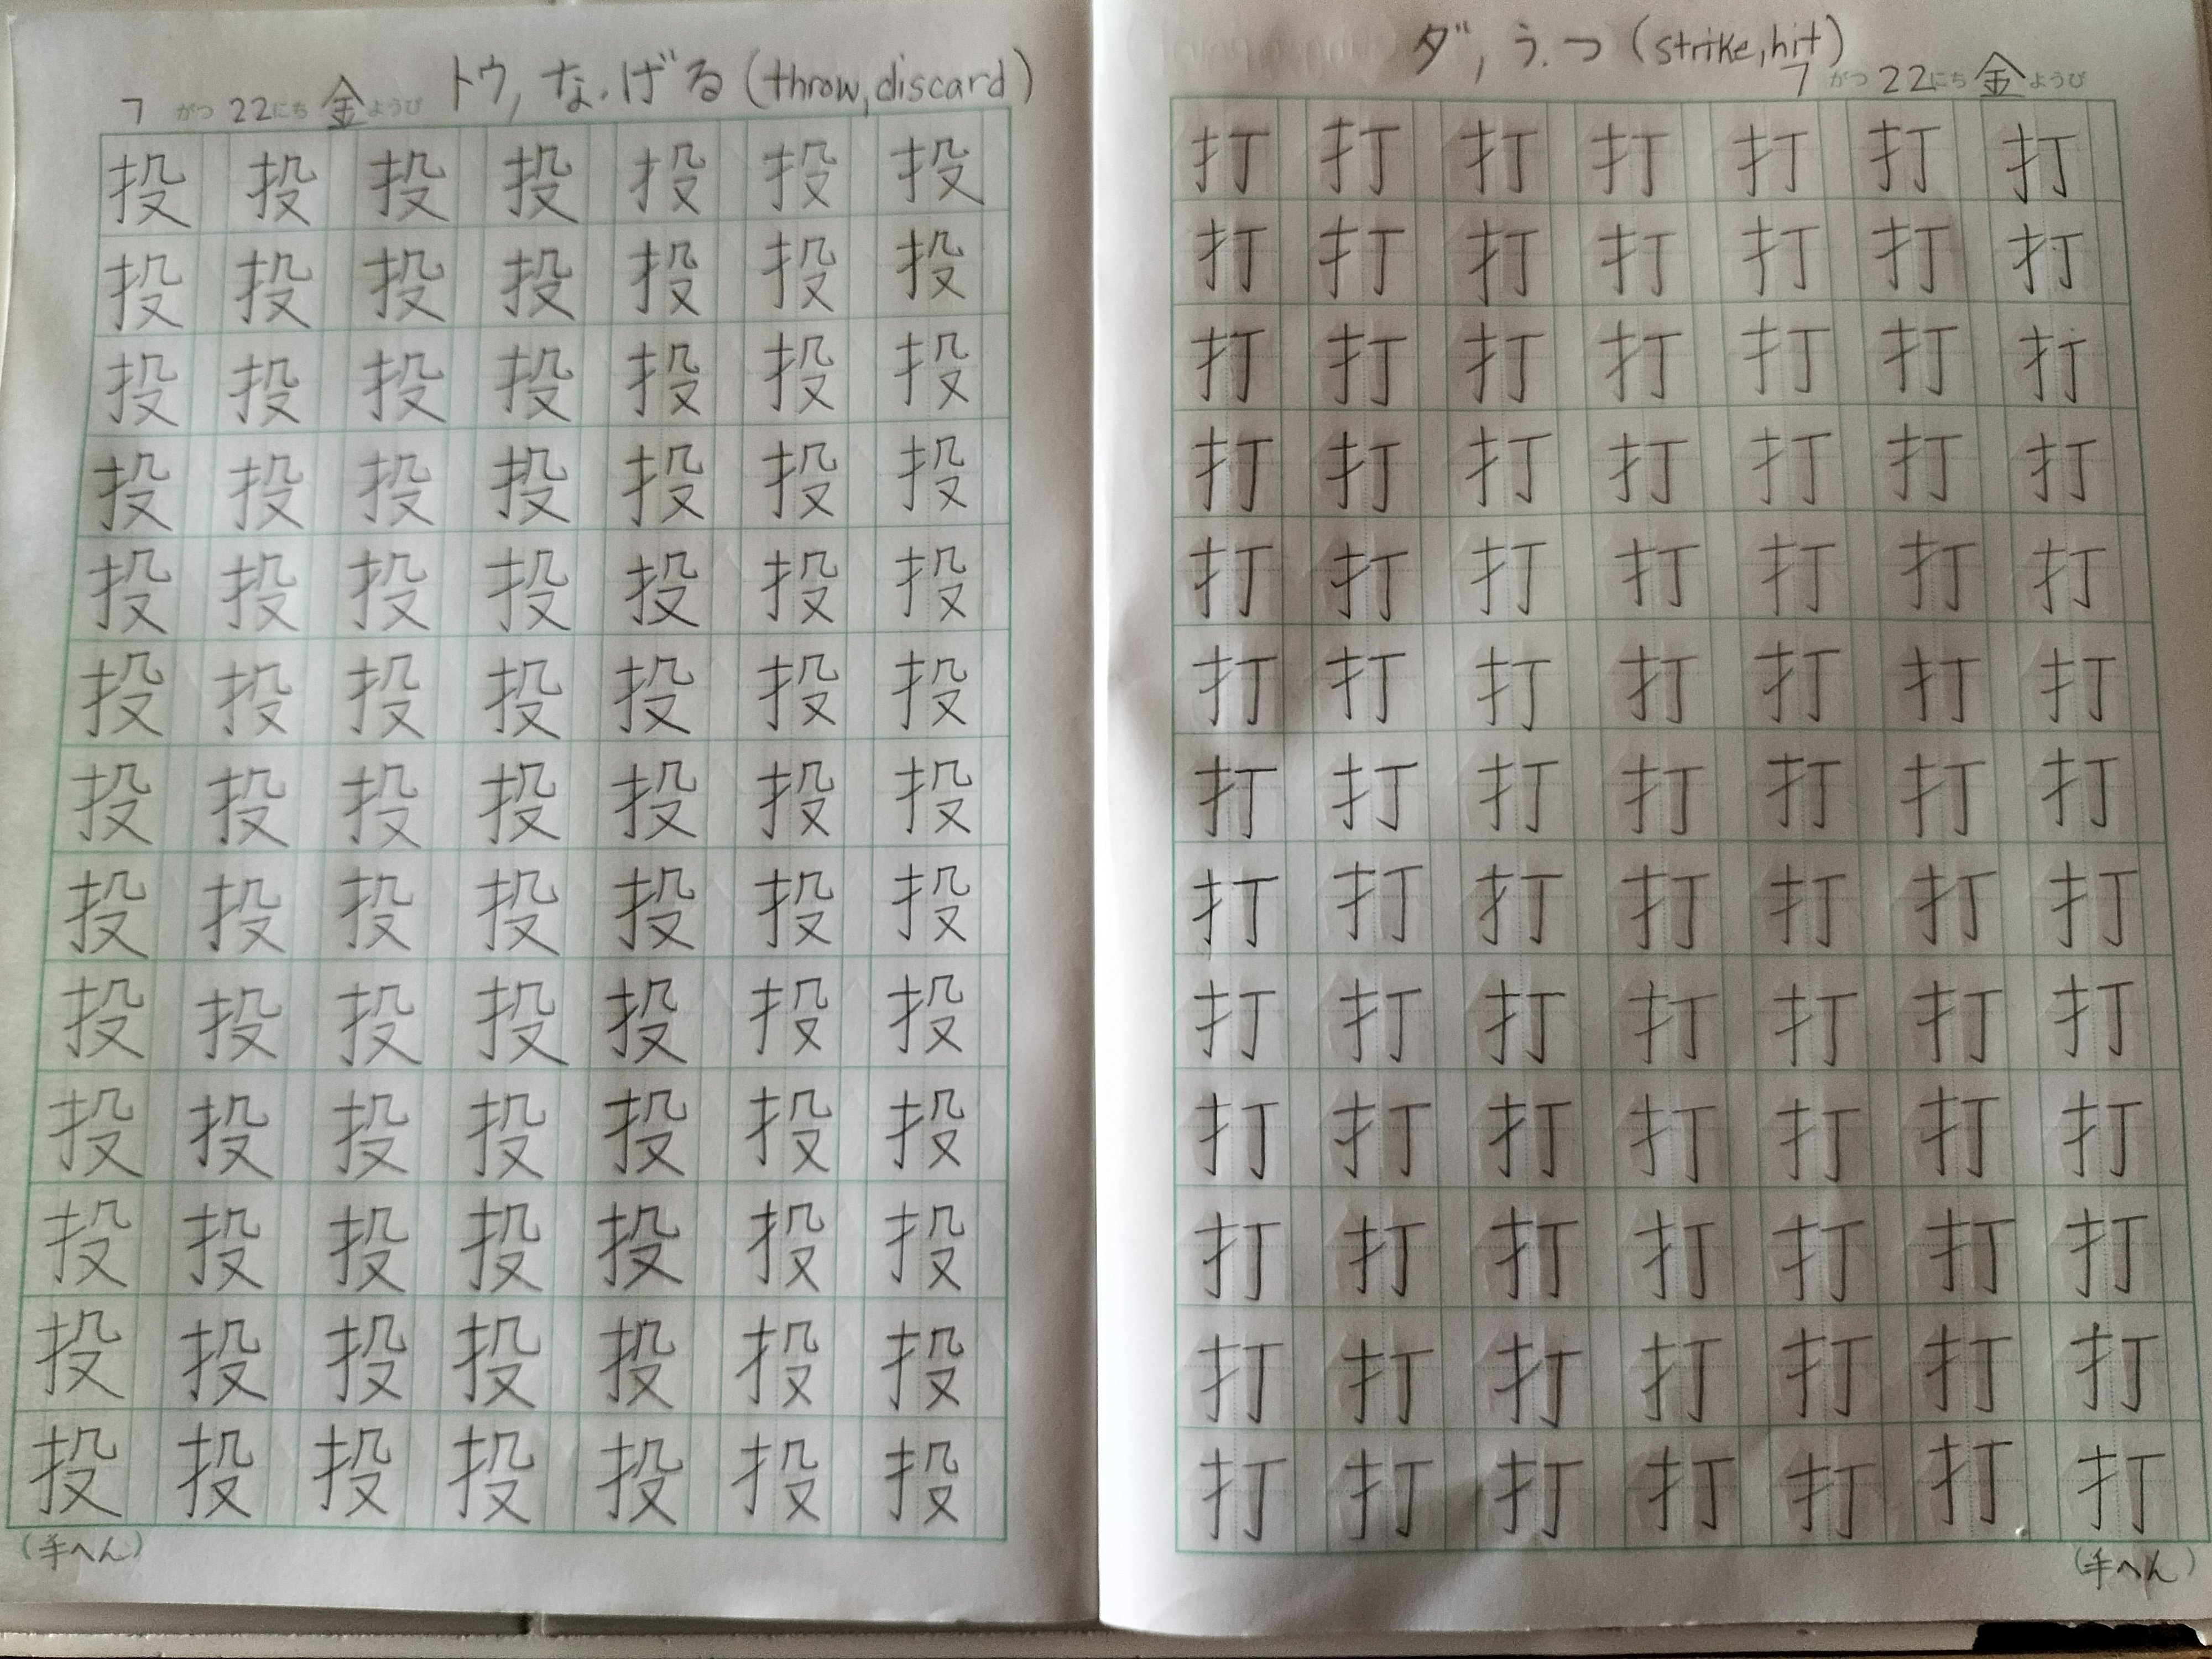 7がつ22にち金ようび トウ, な.げる (throw, discard)
投投投投投投投
投投投投投投投
投投投投投投投
投投投投投投投
投投投投投投投
投投投投投投投
投投投投投投投
投投投投投投投
投投投投投投投
投投投投投投投
投投投投投投投
投投投投投投投
投投投投投投投
(手へん)
ダ, う.つ (strike, hit)
7がつ22にち金ようび
打打打打打打打
打打打打打打打
打打打打打打打
打打打打打打打
打打打打打打打
打打打打打打打
打打打打打打打
打打打打打打打
打打打打打打打
打打打打打打打
打打打打打打打
打打打打打打打
打打打打打打打
(手へん)